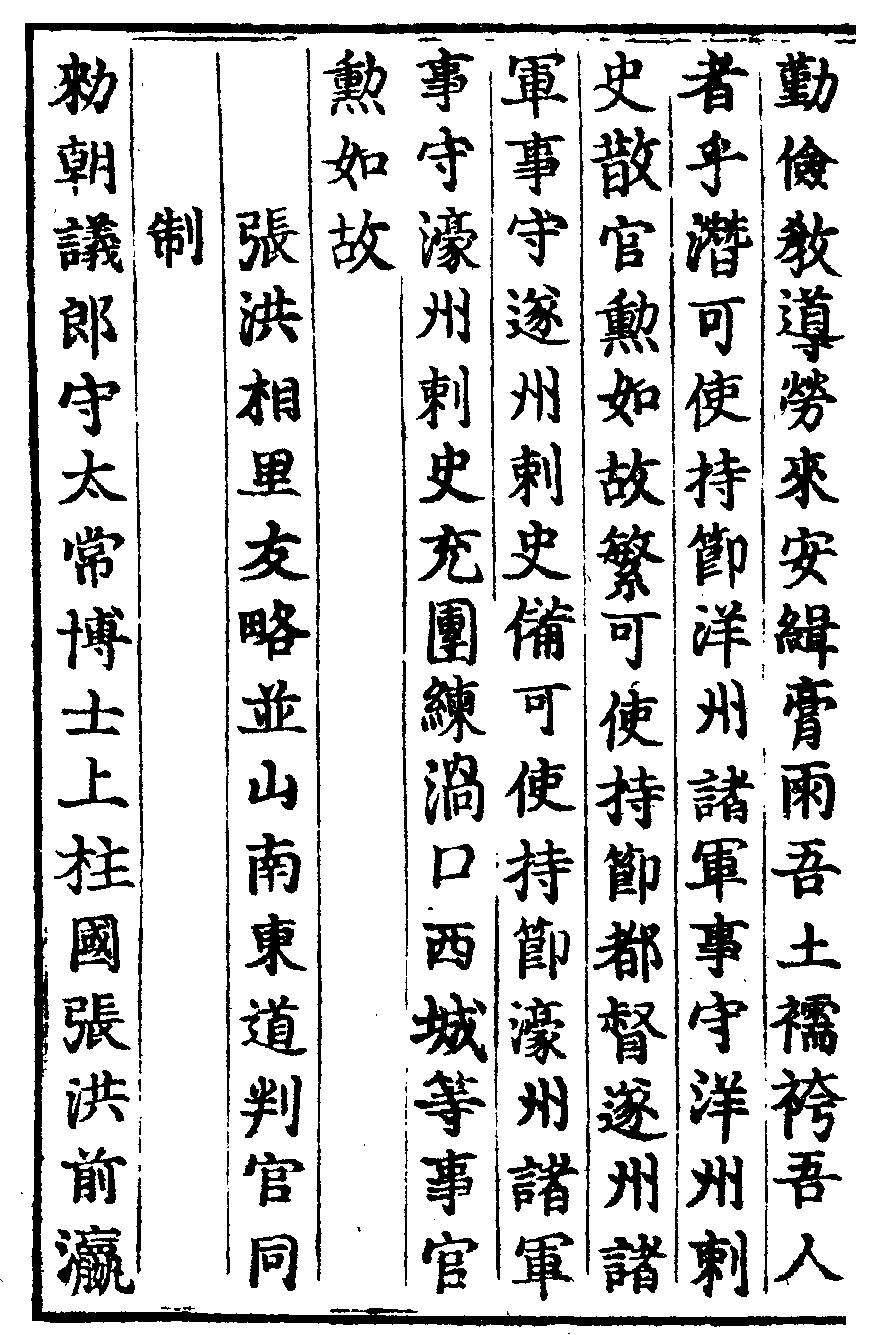 勤儉敎導勞來安緝膏雨吾土襦袴吾人
者乎潛可使持節洋州諸軍事守洋州刺
史散官勲如故繁可使持節都督遂州諸
軍事守遂州刺史備可使持節濠州諸軍
事守濠州刺史充團練渦口西城等事官
勲如故
張洪相里友略並山南東道判官同
制
勑朝議郎守太常博士上柱國張洪前瀛